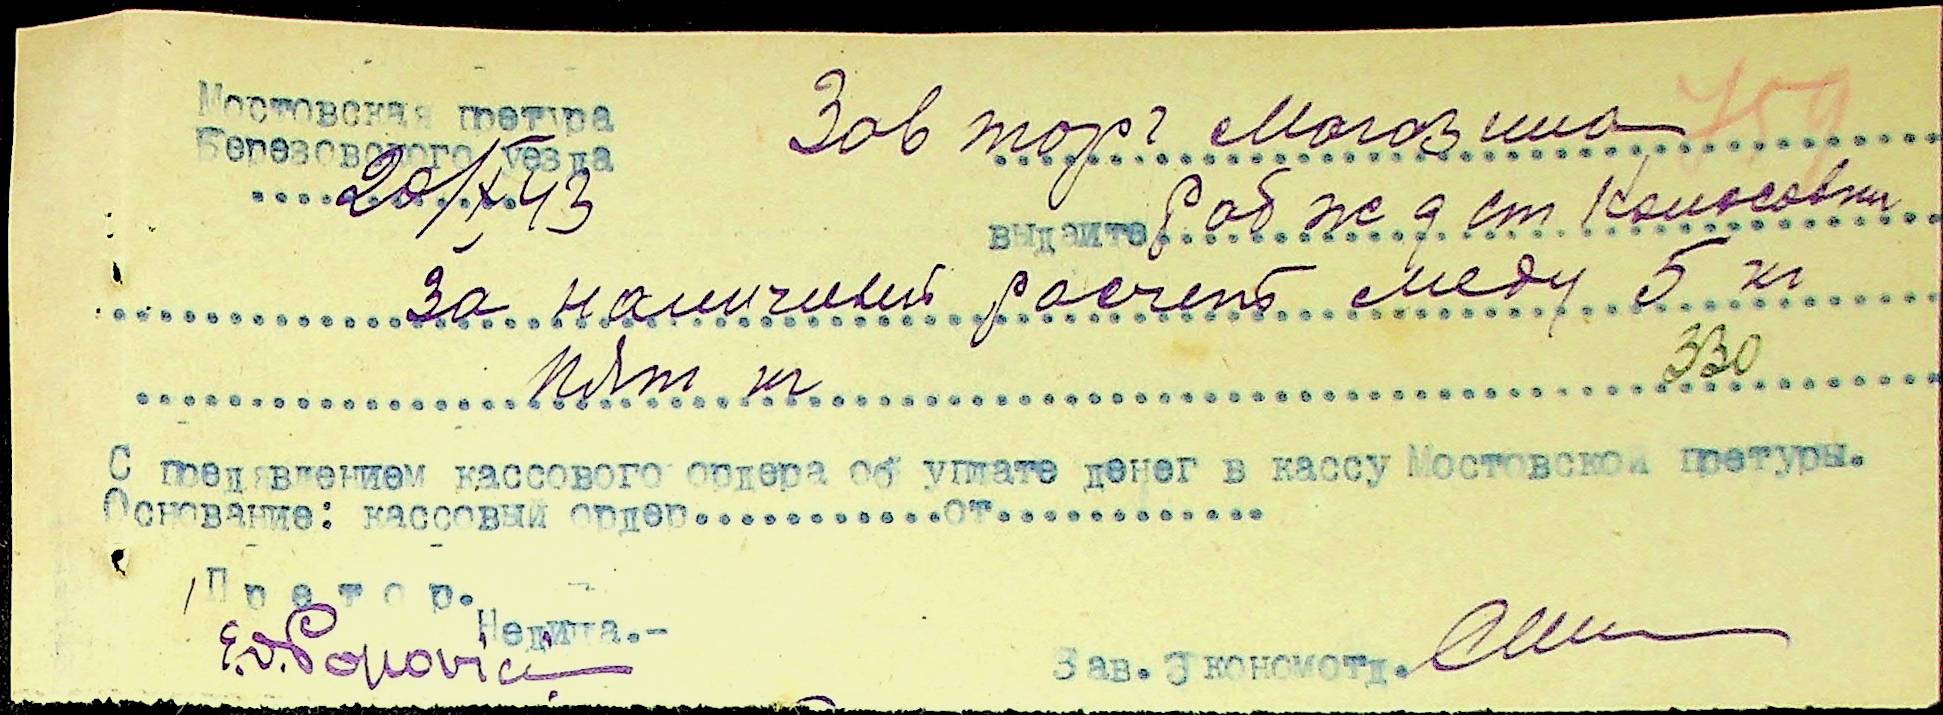 Мостовская претура
Березовского уезда
20/X 43
159
Зав торг Магазина
выдайте Раб ж д ст Колосовки
За наличный расчет меду 5 кг
Пят кг
330
С предявлением кассового ордера об уплате денег в кассу Мостовской претуры.
Основание: кассовый ордер............от.............
Претор.
Недина.-
E.D. Popovici
Зав. Экономотд.